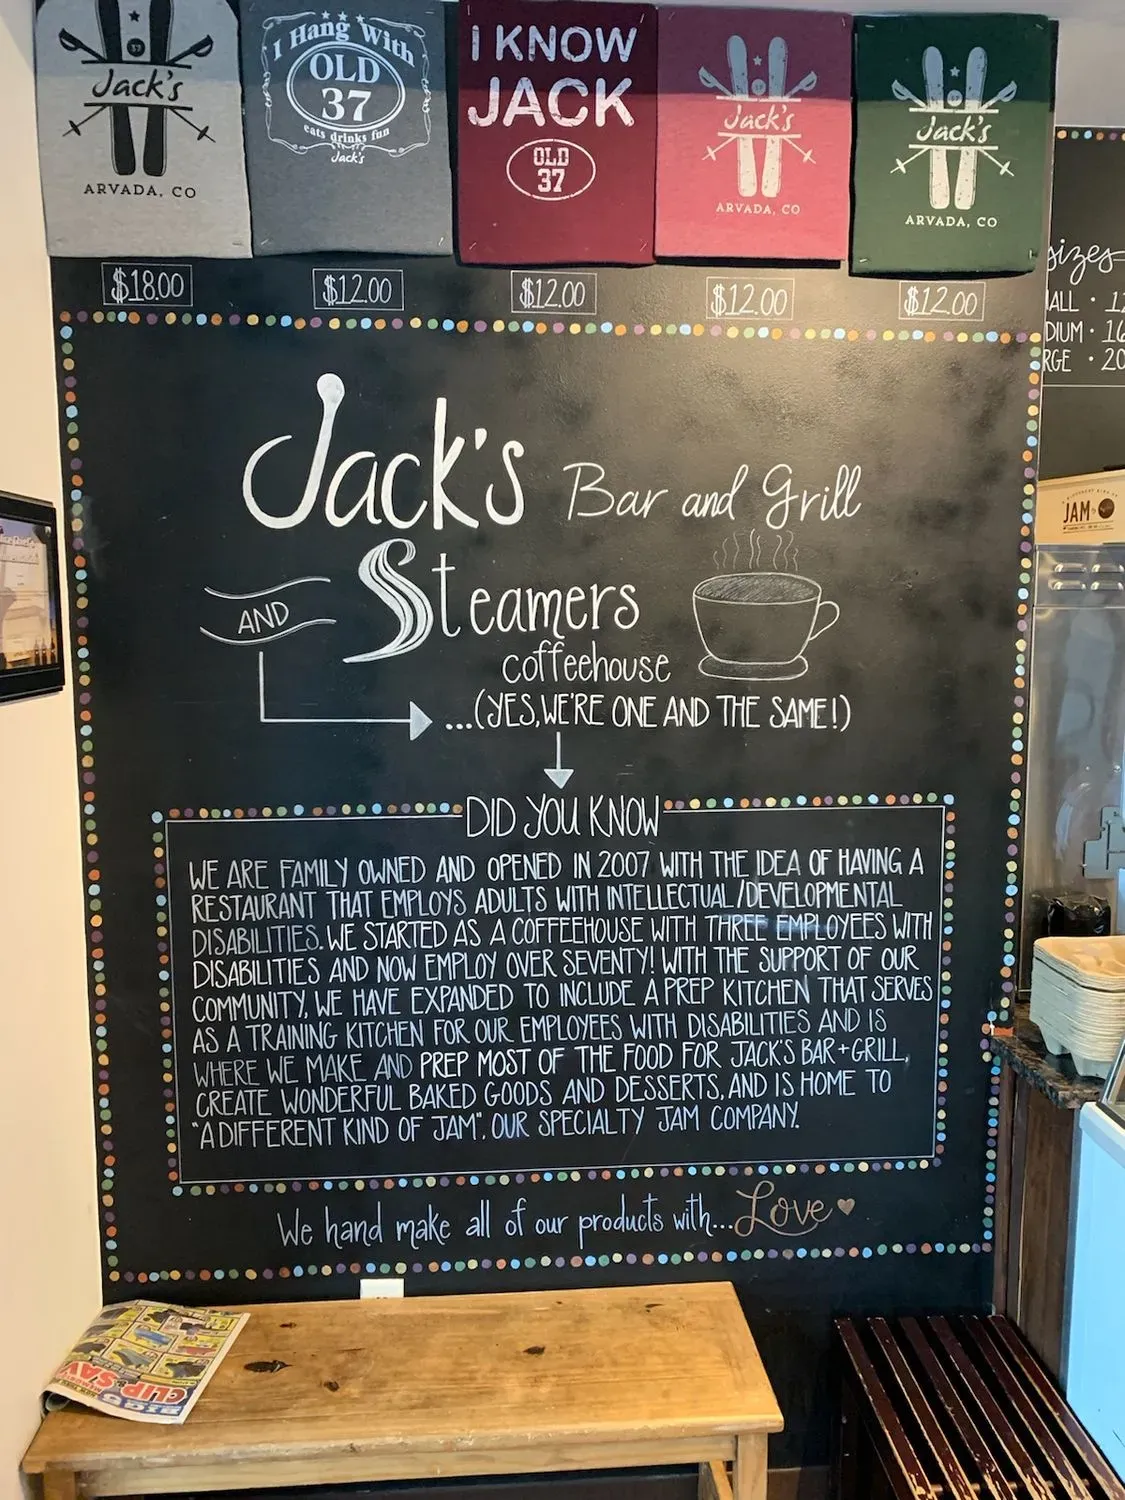 Jack's
37
ARVADA, CO
I Hang With
OLD
37
eats drinks fun
Jack's
I KNOW
JACK
OLD
37
Jack's
37
ARVADA, CO
Jack's
ARVADA, CO
$18.00
$12.00
$12.00
$12.00
$12.00
sizes
ALL · 12
DIUM · 16
RGE · 20
Jack's Bar and Grill
AND Steamers
coffeehouse
...(YES, WE'RE ONE AND THE SAME!)
DID YOU KNOW
WE ARE FAMILY OWNED AND OPENED IN 2007 WITH THE IDEA OF HAVING A
RESTAURANT THAT EMPLOYS ADULTS WITH INTELLECTUAL/DEVELOPMENTAL
DISABILITIES. WE STARTED AS A COFFEEHOUSE WITH THREE EMPLOYEES WITH
DISABILITIES AND NOW EMPLOY OVER SEVENTY! WITH THE SUPPORT OF OUR
COMMUNITY, WE HAVE EXPANDED TO INCLUDE A PREP KITCHEN THAT SERVES
AS A TRAINING KITCHEN FOR OUR EMPLOYEES WITH DISABILITIES AND IS
WHERE WE MAKE AND PREP MOST OF THE FOOD FOR JACK'S BAR+GRILL,
CREATE WONDERFUL BAKED GOODS AND DESSERTS, AND IS HOME TO
"A DIFFERENT KIND OF JAM". OUR SPECIALTY JAM COMPANY.
We hand make all of our products with... Love
JAM
BIG5
CLIP & SAV